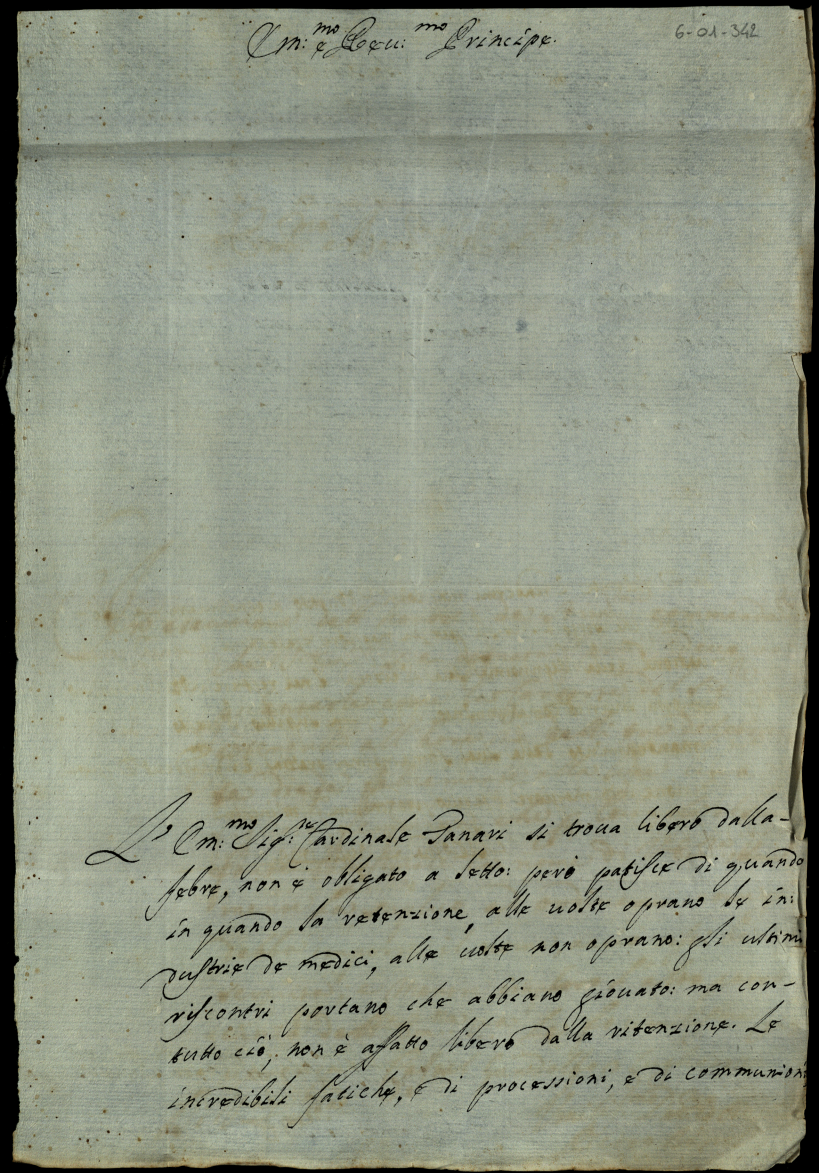 Em:mo e Reu:mo Principe.
6-01-342
L' Em:mo Sig:re Cardinale Panari si troua libero dalla-
febre, non è obligato a letto: però patisce di quando
in quando la retenzione, alle uolte oprano le in:
dustrie de medici, alle uolte non oprano: gli ultimi
riscontri portano che abbiano giouato: ma con-
tutto ciò, non è affatto libero dalla ritenzione. Le
incredibili fatiche, e di processioni, e di communioni